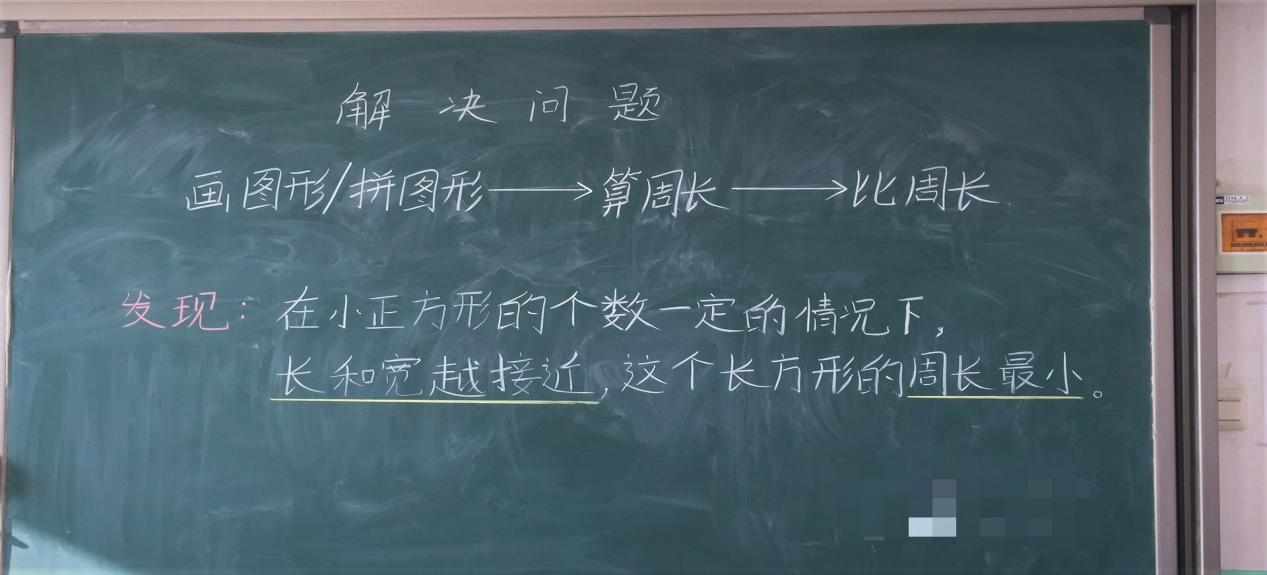 解决问题
画图形/拼图形→算周长→比周长
发现：在小正方形的个数一定的情况下，
长和宽越接近，这个长方形的周长最小。